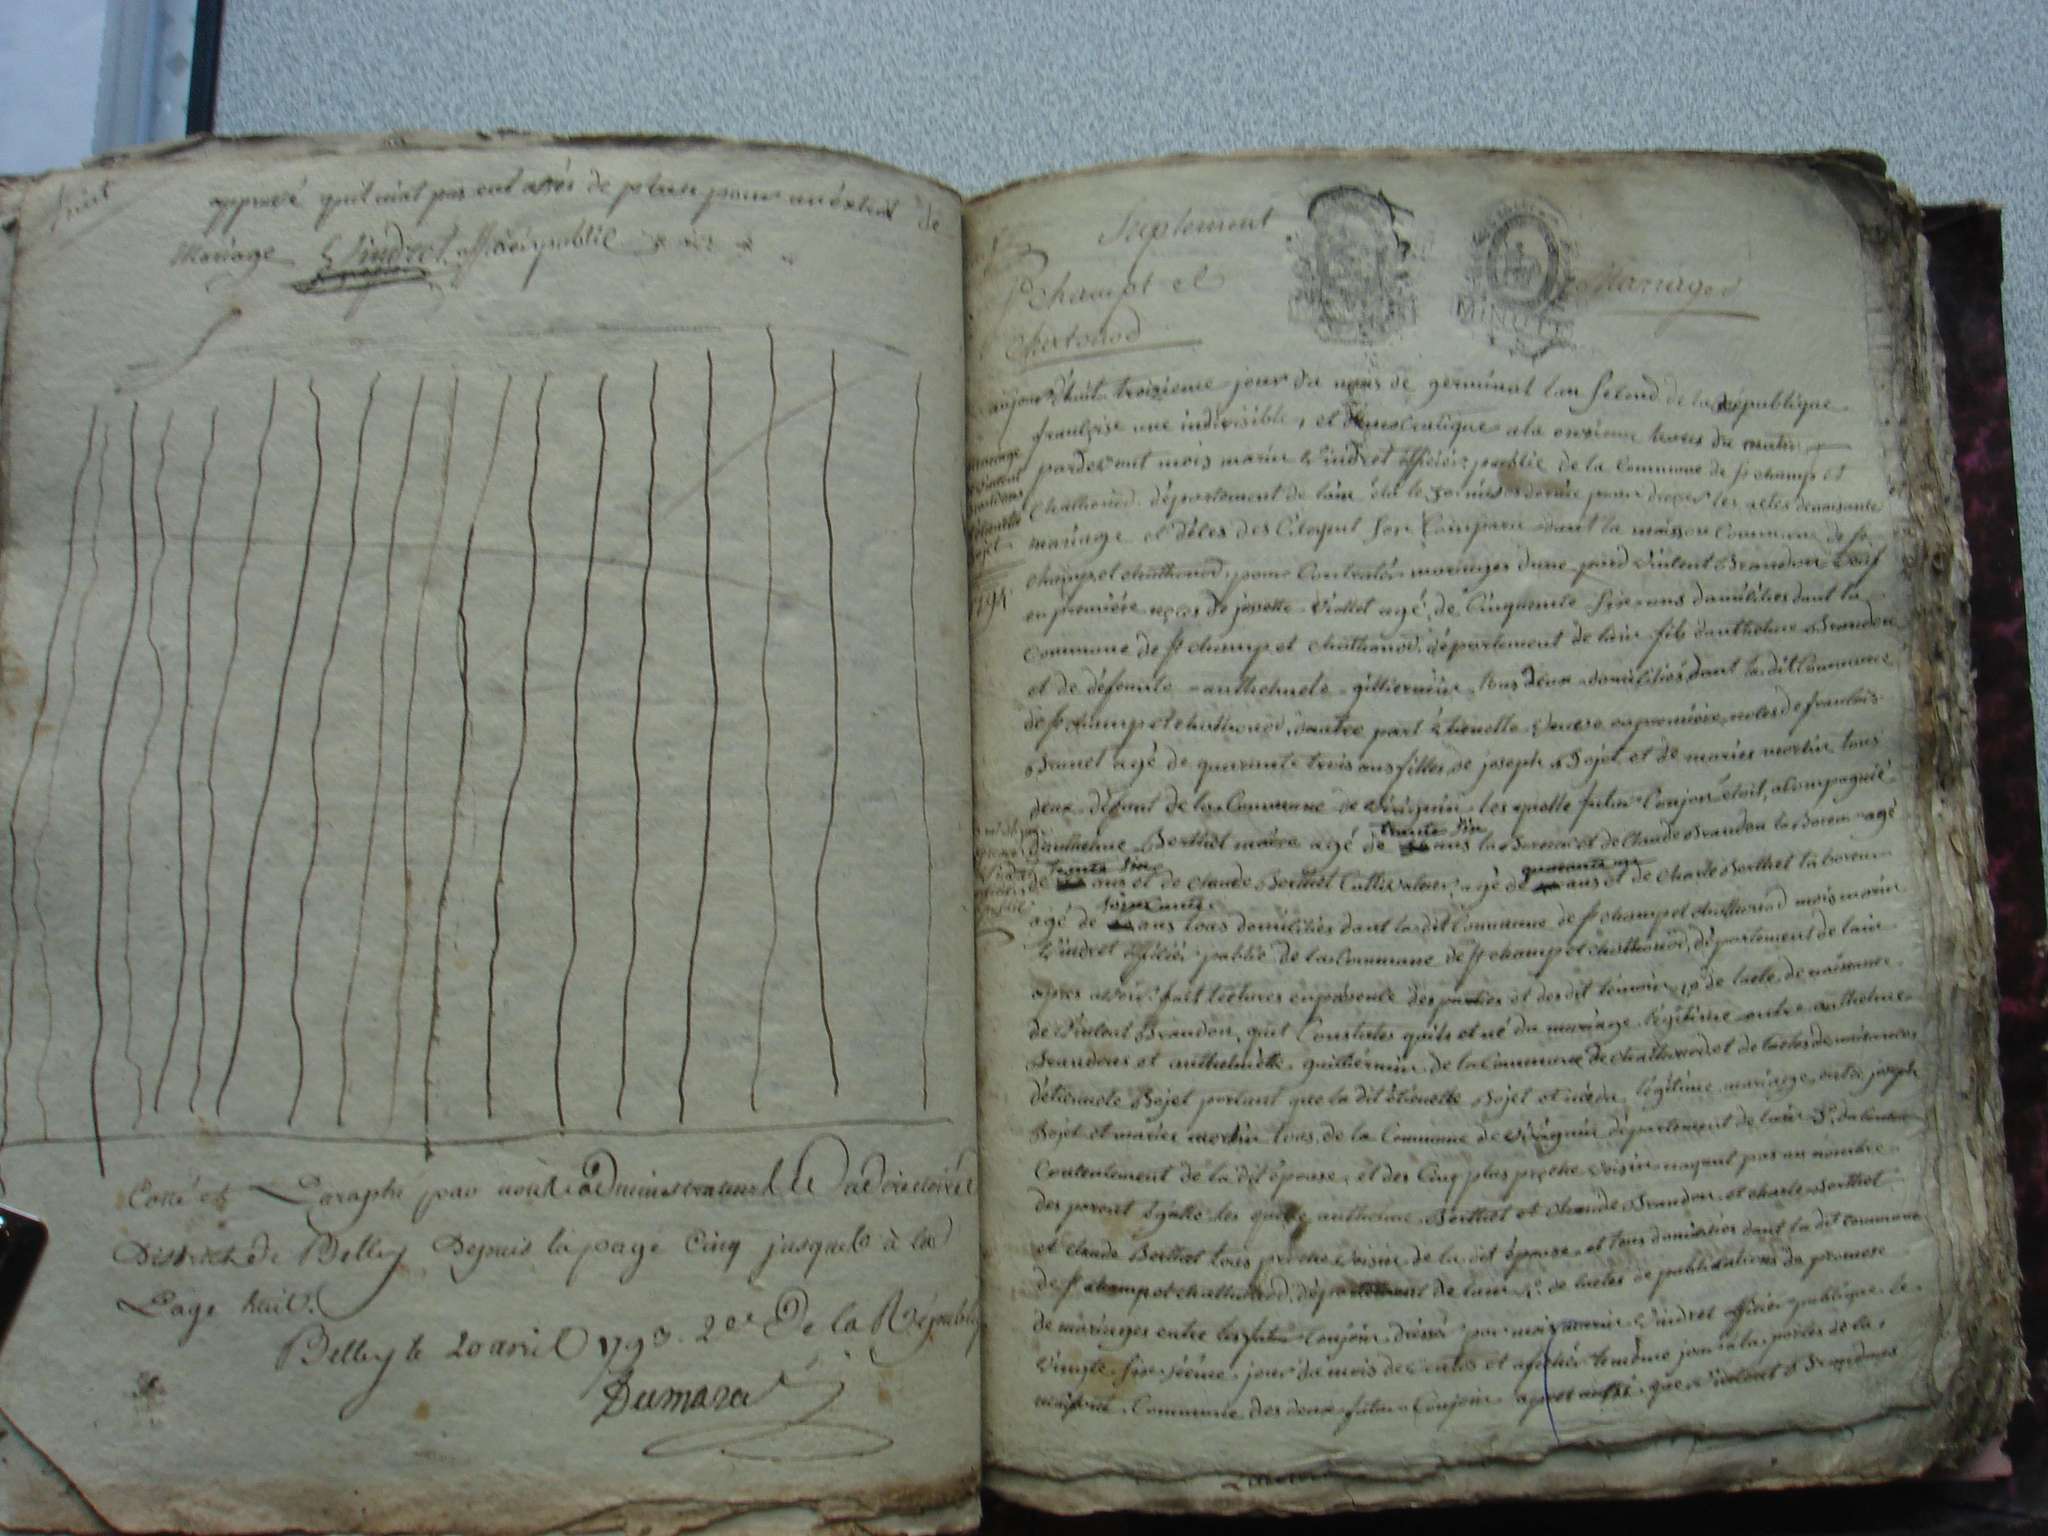 huit
approvè qu'il niat pas eut assés de place pour un éxtrait de
Mariage Vindret officier public
Cotté et Paraphé par nous administrateur du Directoire
District de Belley Depuis la page Cinq jusquelà à la
Page huit.
Belley le 20 avril 1793. 2e De la République
Dumarest
Suplement
St Champt et
Chattonod
Mariages
MINUTE
mariage
vintent
brandon
étienette
bojet
1794
aujourd'huit troizieme jour du mois de germinal lan second de la republique
francoise une indivisible, et démocratique a la onzieme heures du matin
pardevant mois marin Vindret officier public de la Commune de st champ et
Chattonod département de lain élu le pour dresser les actes de naisante
mariage et déces des Citoyens son Comparu dant la maison Commune de st
champ et chattonod, pour Contractér mariages dune pard vintent Brandon veuf
en première noces de josette Viollet agé de Cinquante six ans domiliés dant la
Commune de st champ et chattonod département de lain fils danthelme Brandon
et de défeunte anthelmete gilliermin tous deux domiliés dant la dit Commune
de st champ et chattonod, dautre part étienette veuve en première noces de francois
Brunet agé de quarante trois ans filles de joseph Bojet et de maries martin tous
deux défunt de la Commune de virignin les quelle futur Conjoin étoit acompagnié
d'anthelme Berthet maire agé de trente six ans laboreur et de Claude Brandon laboreur agé
de trente six ans et de claude Berthet Cultivateur agé de quarante ans et de Charle Berthet laboreur
agé de soixante ans tous domiliés dant la dit Commune de st champ et chattonod mois marin
Vindret officier public de la Commune de st champ et chattonod, département de lain
apres avoir fait lectures en présence des parties et des dit temoins 1° de lacte de naissance
de Vintent Brandon, quit Constates quils et né du mariage légitime entre anthelme
Brandons et anthelmette guilliermin de la Commune de chattonod et de lactes de naisances
détiennete Bojet portant que la dit étienette Bojet et née du légitime mariage entre joseph
Bojet et maries martin tous de la Commune de virignin département de lain 3° du
Contentement de la dit épouse, et des Cinq plus proche voisin nayant pas un nombre
des parent égalle les quelle anthelme Berthet et Claude Brandon et charle Berthet
et claude Berthet tous proche voisin de la dit épouse et tous domiliés dant la dit commune
de st champ et chattonod, département de lain 4° de lactes de publications de promese
de mariages entre les futur Conjoin dressé par mois marin Vindret officier publique le
Vingte six sième jour du mois de Ventos et afichés le même jour a la portes de la
maison Commune des deux futur Conjoin apres aussi que Vintent Brandons